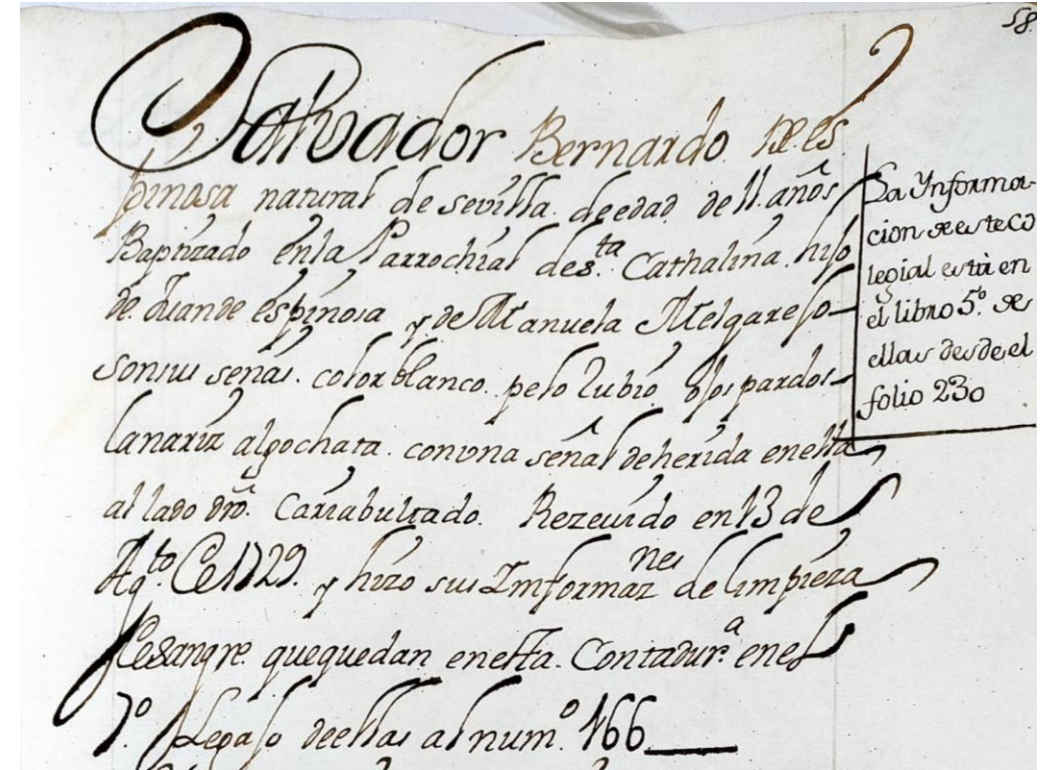 58.
Salvador Bernardo de es
pinosa natural de sevilla. de edad de 11 años
Baptizado en la Parrochial de s.ta Cathalina. hijo
de Juan de espinosa y de Manuela Melgarejo
son sus señas. color blanco. pelo Rubio. ojos pardos
la nariz algo chata. con vna señal de herida en ella
al lado dro. Cariabultado. Rezeuido en 13 de
Ag.to de 1729. y hizo sus Imformaz.nes de limpieza
de sangre. que quedan en esta. Contadur.a en el
7.o Legajo de ellas al num.o 166
La Ynforma-
cion de este Co
legial està en
el libro 5.o de
ellas desde el
folio 230